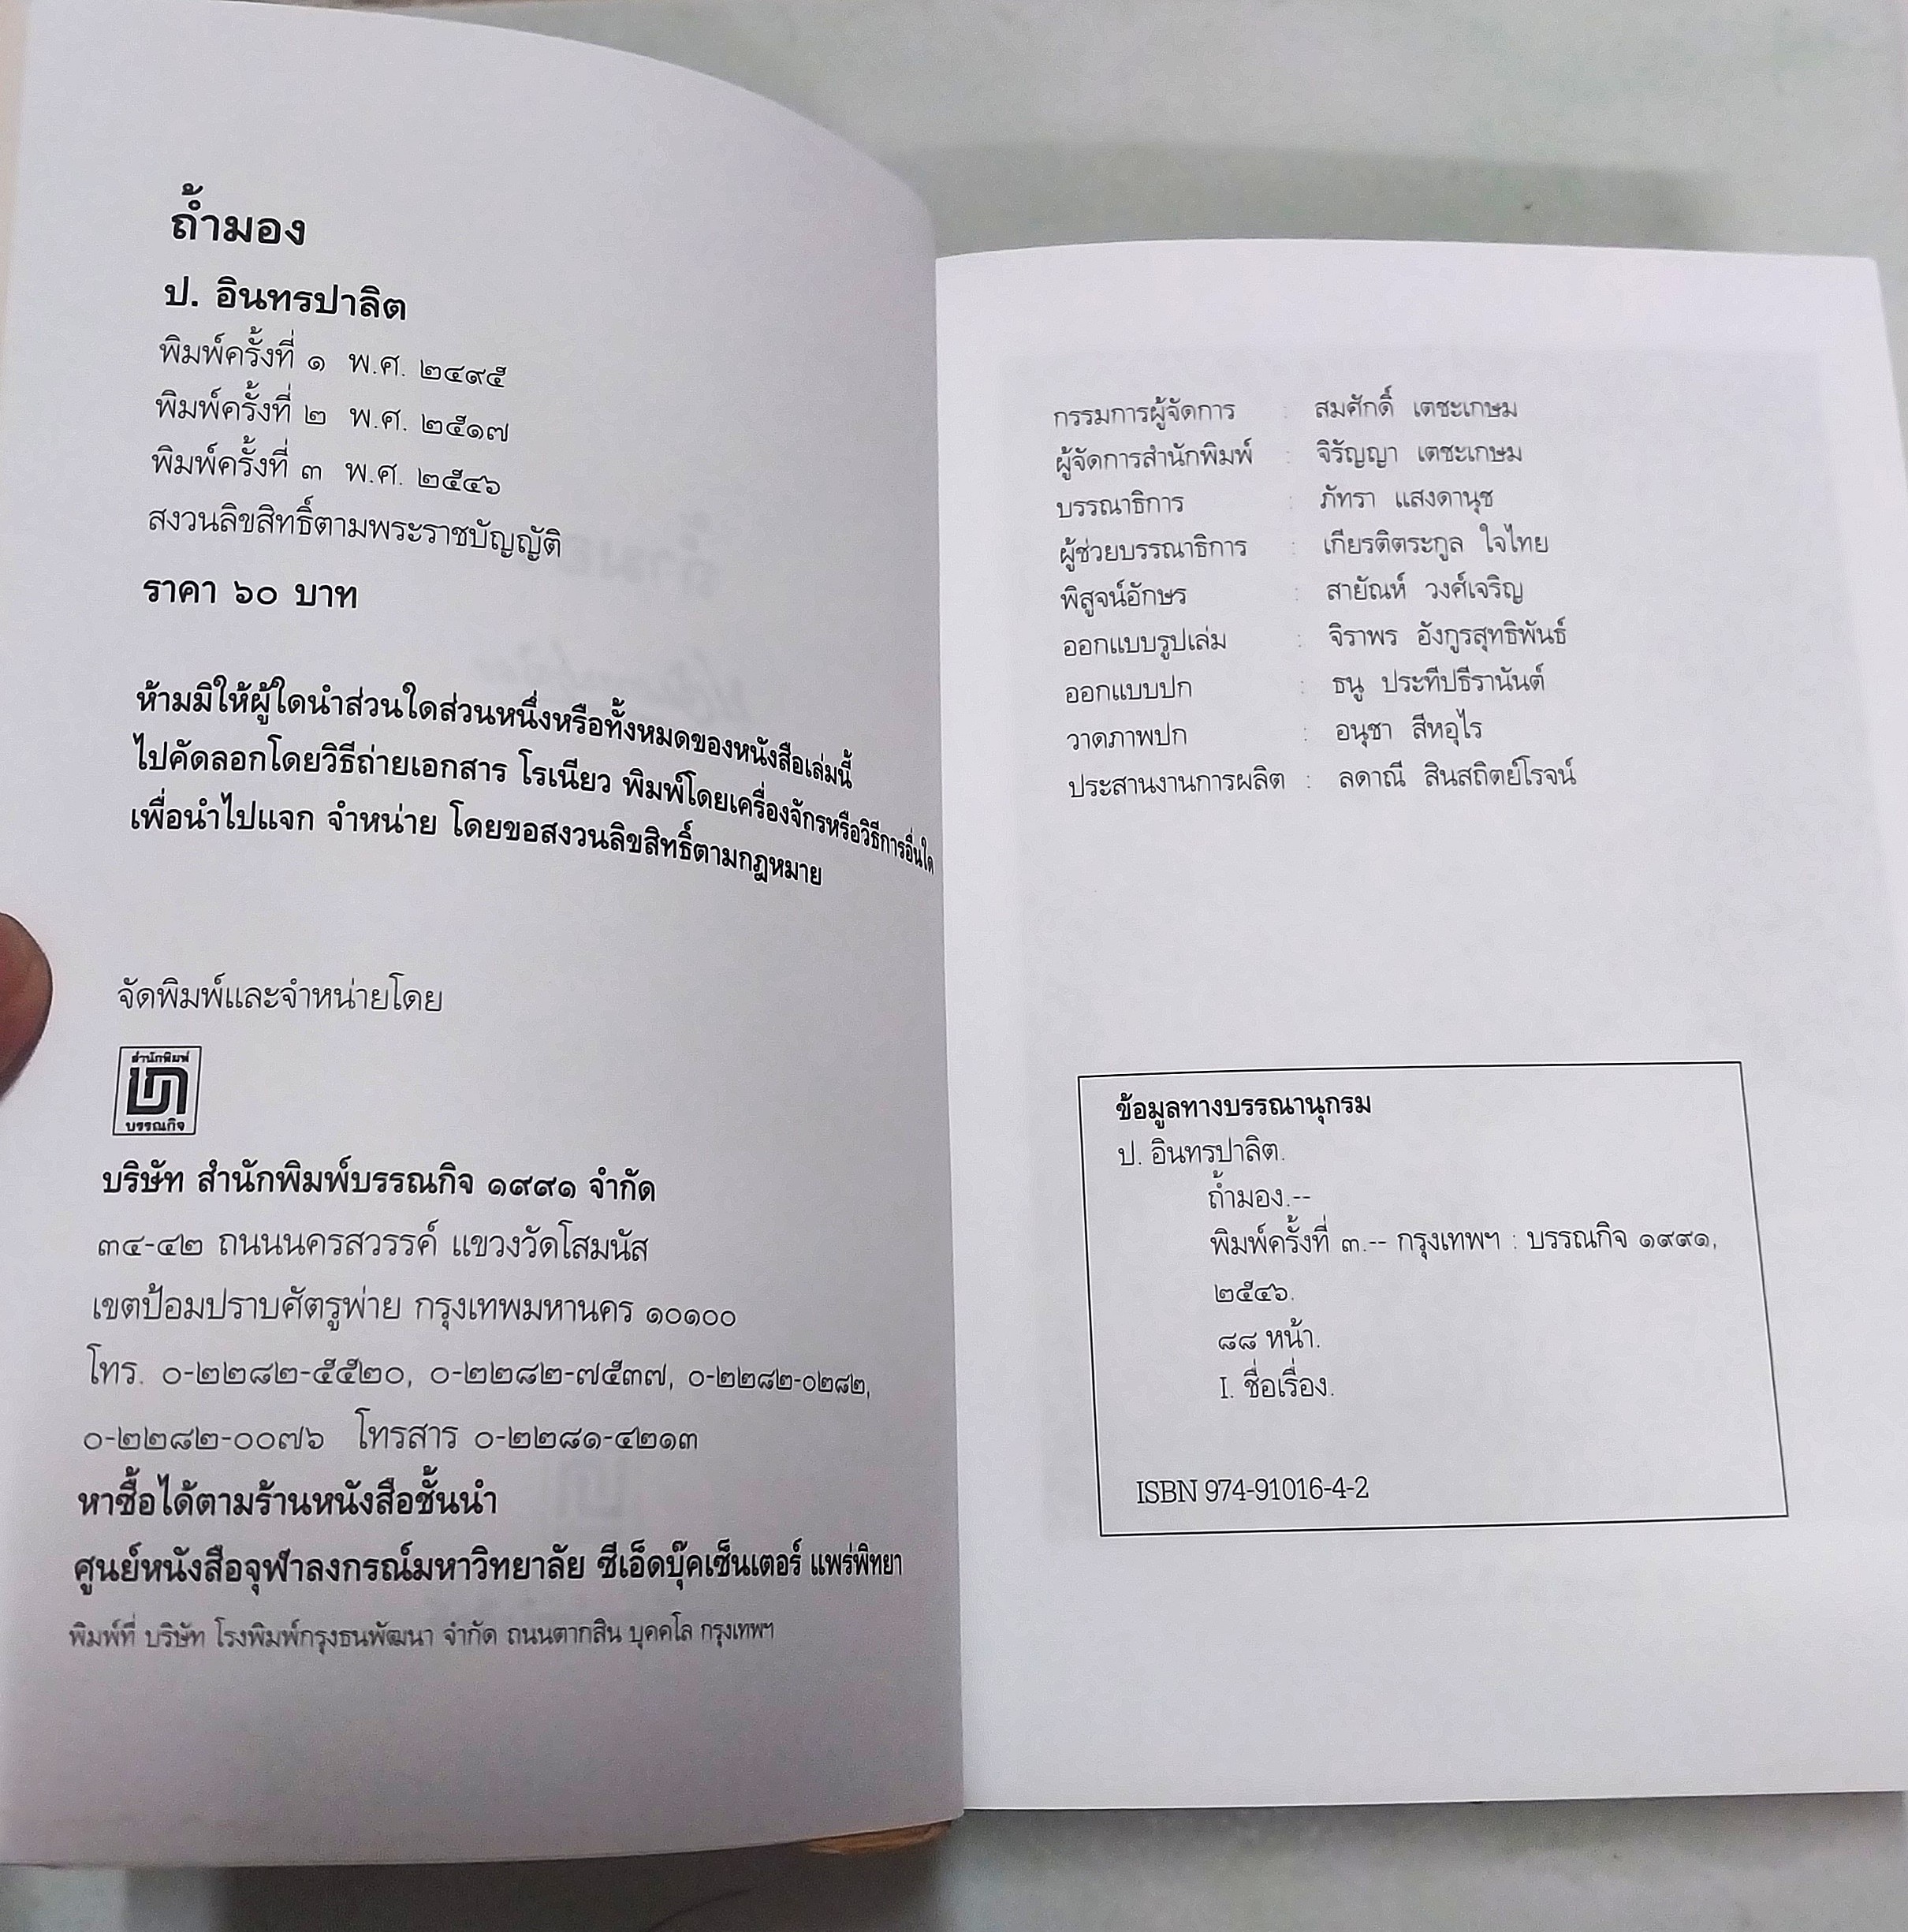 ถ้ำมอง
ป. อินทรปาลิต
พิมพ์ครั้งที่ ๑ พ.ศ. ๒๔๙๕
พิมพ์ครั้งที่ ๒ พ.ศ. ๒๕๑๗
พิมพ์ครั้งที่ ๓ พ.ศ. ๒๕๔๖
สงวนลิขสิทธิ์ตามพระราชบัญญัติ
ราคา ๖๐ บาท
ห้ามมิให้ผู้ใดนำส่วนใดส่วนหนึ่งหรือทั้งหมดของหนังสือเล่มนี้
ไปคัดลอกโดยวิธีถ่ายเอกสาร โรเนียว พิมพ์โดยเครื่องจักรหรือวิธีการอื่นใด
เพื่อนำไปแจก จำหน่าย โดยขอสงวนลิขสิทธิ์ตามกฎหมาย
จัดพิมพ์และจำหน่ายโดย
สำนักพิมพ์
บรรณกิจ
บริษัท สำนักพิมพ์บรรณกิจ ๑๙๙๑ จำกัด
๓๔-๔๒ ถนนนครสวรรค์ แขวงวัดโสมนัส
เขตป้อมปราบศัตรูพ่าย กรุงเทพมหานคร ๑๐๑๐๐
โทร. ๐-๒๒๘๒-๕๕๒๐, ๐-๒๒๘๒-๗๕๓๗, ๐-๒๒๘๒-๐๒๘๒,
๐-๒๒๘๒-๐๐๗๖ โทรสาร ๐-๒๒๘๑-๔๒๑๓
หาซื้อได้ตามร้านหนังสือชั้นนำ
ศูนย์หนังสือจุฬาลงกรณ์มหาวิทยาลัย ซีเอ็ดบุ๊คเซ็นเตอร์ แพร่พิทยา
พิมพ์ที่ บริษัท โรงพิมพ์กรุงธนพัฒนา จำกัด ถนนตากสิน บุคคโล กรุงเทพฯ
กรรมการผู้จัดการ : สมศักดิ์ เตชะเกษม
ผู้จัดการสำนักพิมพ์ : จิรัญญา เตชะเกษม
บรรณาธิการ : ภัทรา แสงดานุช
ผู้ช่วยบรรณาธิการ : เกียรติตระกูล ใจไทย
พิสูจน์อักษร : สายัณห์ วงศ์เจริญ
ออกแบบรูปเล่ม : จิราพร อังกูรสุทธิพันธ์
ออกแบบปก : ธนู ประทีปธีรานันต์
วาดภาพปก : อนุชา สีหอุไร
ประสานงานการผลิต : ลดาณี สินสถิตย์โรจน์
ข้อมูลทางบรรณานุกรม
ป. อินทรปาลิต.
ถ้ำมอง.--
พิมพ์ครั้งที่ ๓.-- กรุงเทพฯ : บรรณกิจ ๑๙๙๑,
๒๕๔๖.
๘๘ หน้า.
I. ชื่อเรื่อง.
ISBN 974-91016-4-2